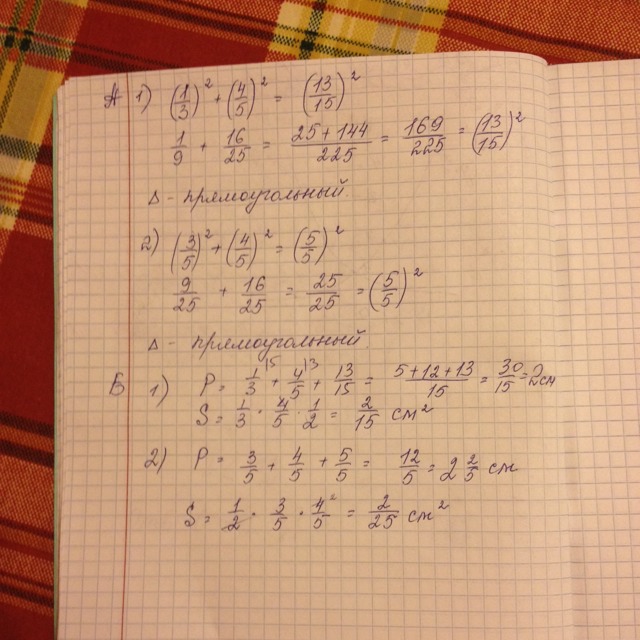 А 1) (1/3)² + (4/5)² = (13/15)²
1/9 + 16/25 = (25+144)/225 = 169/225 = (13/15)²
Δ - прямоугольный.
2) (3/5)² + (4/5)² = (5/5)²
9/25 + 16/25 = 25/25 = (5/5)²
Δ - прямоугольный.
Б 1) P = 1/3 |5 + 4/5 |3 + 13/15 = (5+12+13)/15 = 30/15 = 2см
S = 1/3 · 4/5 · 1/2 = 2/15 см²
2) P = 3/5 + 4/5 + 5/5 = 12/5 = 2 2/5 см
S = 1/2 · 3/5 · 4²/5 = 2/25 см²